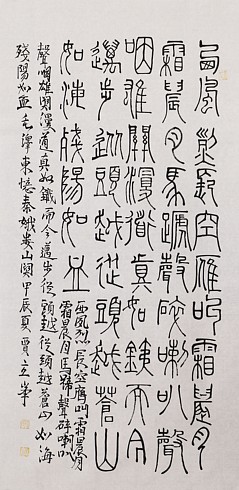 西風烈長空雁叫霜晨月
霜晨月馬蹄聲碎喇叭聲
咽雄關漫道真如鐵而今
邁步從頭越從頭越蒼山
如海殘陽如血
西風烈長空雁叫霜晨月
霜晨月馬蹄聲碎喇叭
聲咽雄關漫道真如鐵而今邁步從頭越從頭越蒼山如海
殘陽如血毛澤東憶秦娥婁山關甲辰夏賈立峰